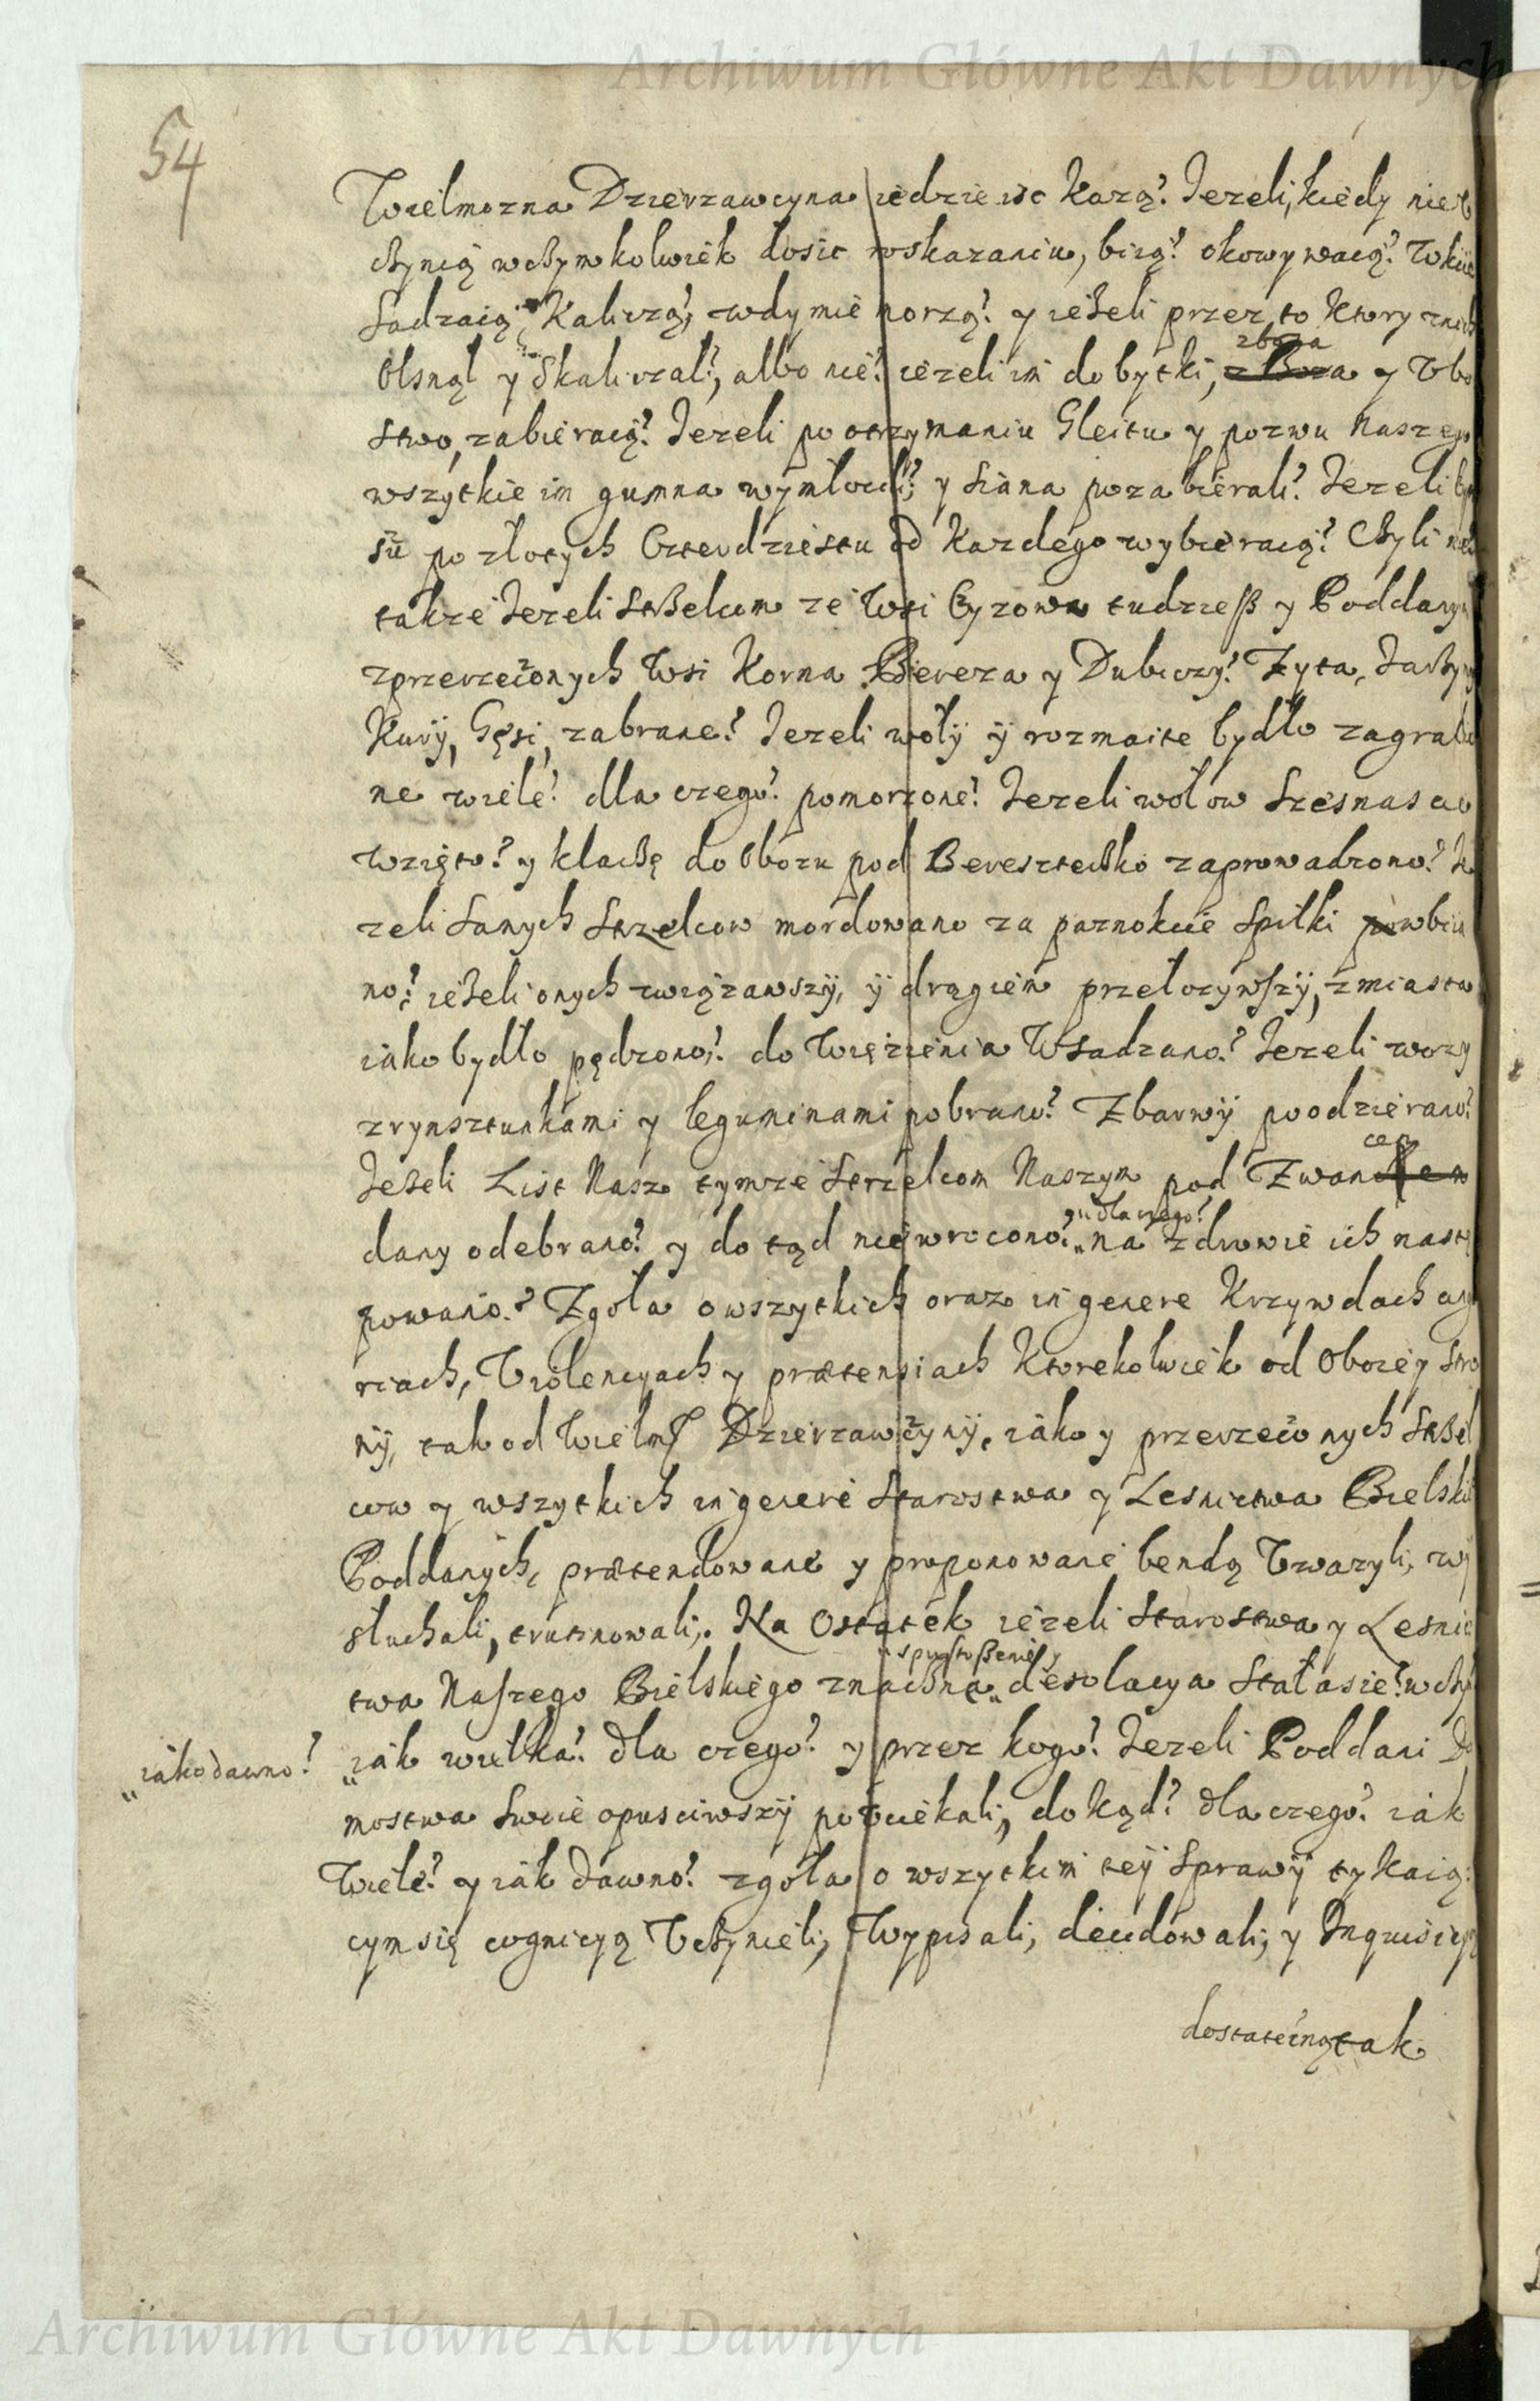 Archiwum Główne Akt Dawnych
54
Wielmozna Dzierzawcyna iedzie isc Kazą? Jezeli, kiedy nie
czynią wczymkolwiek dosic roskazaniu, biią? okowywaią? W kuie
Sadzaią, Kaliczą, wdymie morzą? y ieżeli przez to Ktory znich
Olsnął y Skaliczał, albo nie? iezeli im dobytki, zboza y Vbo
stwo, zabieraią? Jezeli po otrzymaniu Gleitu y pozwu Naszego
wszytkie im gumna wymłocili, y Siana pozabierali? Jezeli
po złotych Czterdziestu od Kazdego wybieraią? Czyli
takze Jezeli Strzelcom ze Wsi Czyzowa tudziesz y Poddanym
zprzerzeczonych Wsi Korna Bereza y Dubiczy? Zyta, Jarzyny
Kury, Gęsi, zabrane? Jezeli woły y rozmaite bydło zagrabio
ne wiele? dla czego? pomorzone? Jezeli wołow Szesnascie
wzięto? y klaczę do Obozu pod Beresteczko zaprowadzono? Je
zeli Samych Strzelcow mordowano za paznokcie Spilki wbiia
no? ieżeli onych związawszy, y drągiem przełozywszy, zmiasta
iako bydło pędzono? do Więzienia Wsadzano? Jezeli wozy
zrynsztunkami y leguminami pobrano? Zbarwy poodzierano?
cem
Jeżeli List Nasz tymze Strzelcom Naszym pod Zwan
„u dla czego?
dany odebrano? y do tąd niewrocono? „na zdrowie ich nastę
powano? Zgoła owszytkich oraz in genere Krzywdach
riach, Violencyach y prætensiach Ktorekolwiek od Oboiey Stro
ny, tak od Wielm Dzierzawczyny, iako y przerzeczonych Strzel
cow y wszytkich in genere Starostwa y Lesnictwa Bielski
Poddanych, prætendowane y proponowane bendą Vwazyli, wy
słuchali, trutinowali. Na Ostatek iezeli Starostwa y Lesnic
„spustoszenie y
twa Naszego Bielskiego znaczna „desolacya Stałasie? wczym
„iako dawno? „iak wielka? dla czego? y przez kogo? Jezeli Poddani Do
mostwa Swoie opusciwszy pouciekali, dokąd? dla czego? iak
Wiele? y iak dawno? zgoła o wszytkim tey Sprawy tykaią
cymsię cognicyą Vczynieli, Wypisali, decidowali, y Inquisicyą
dostateczną tak
Archiwum Główne Akt Dawnych